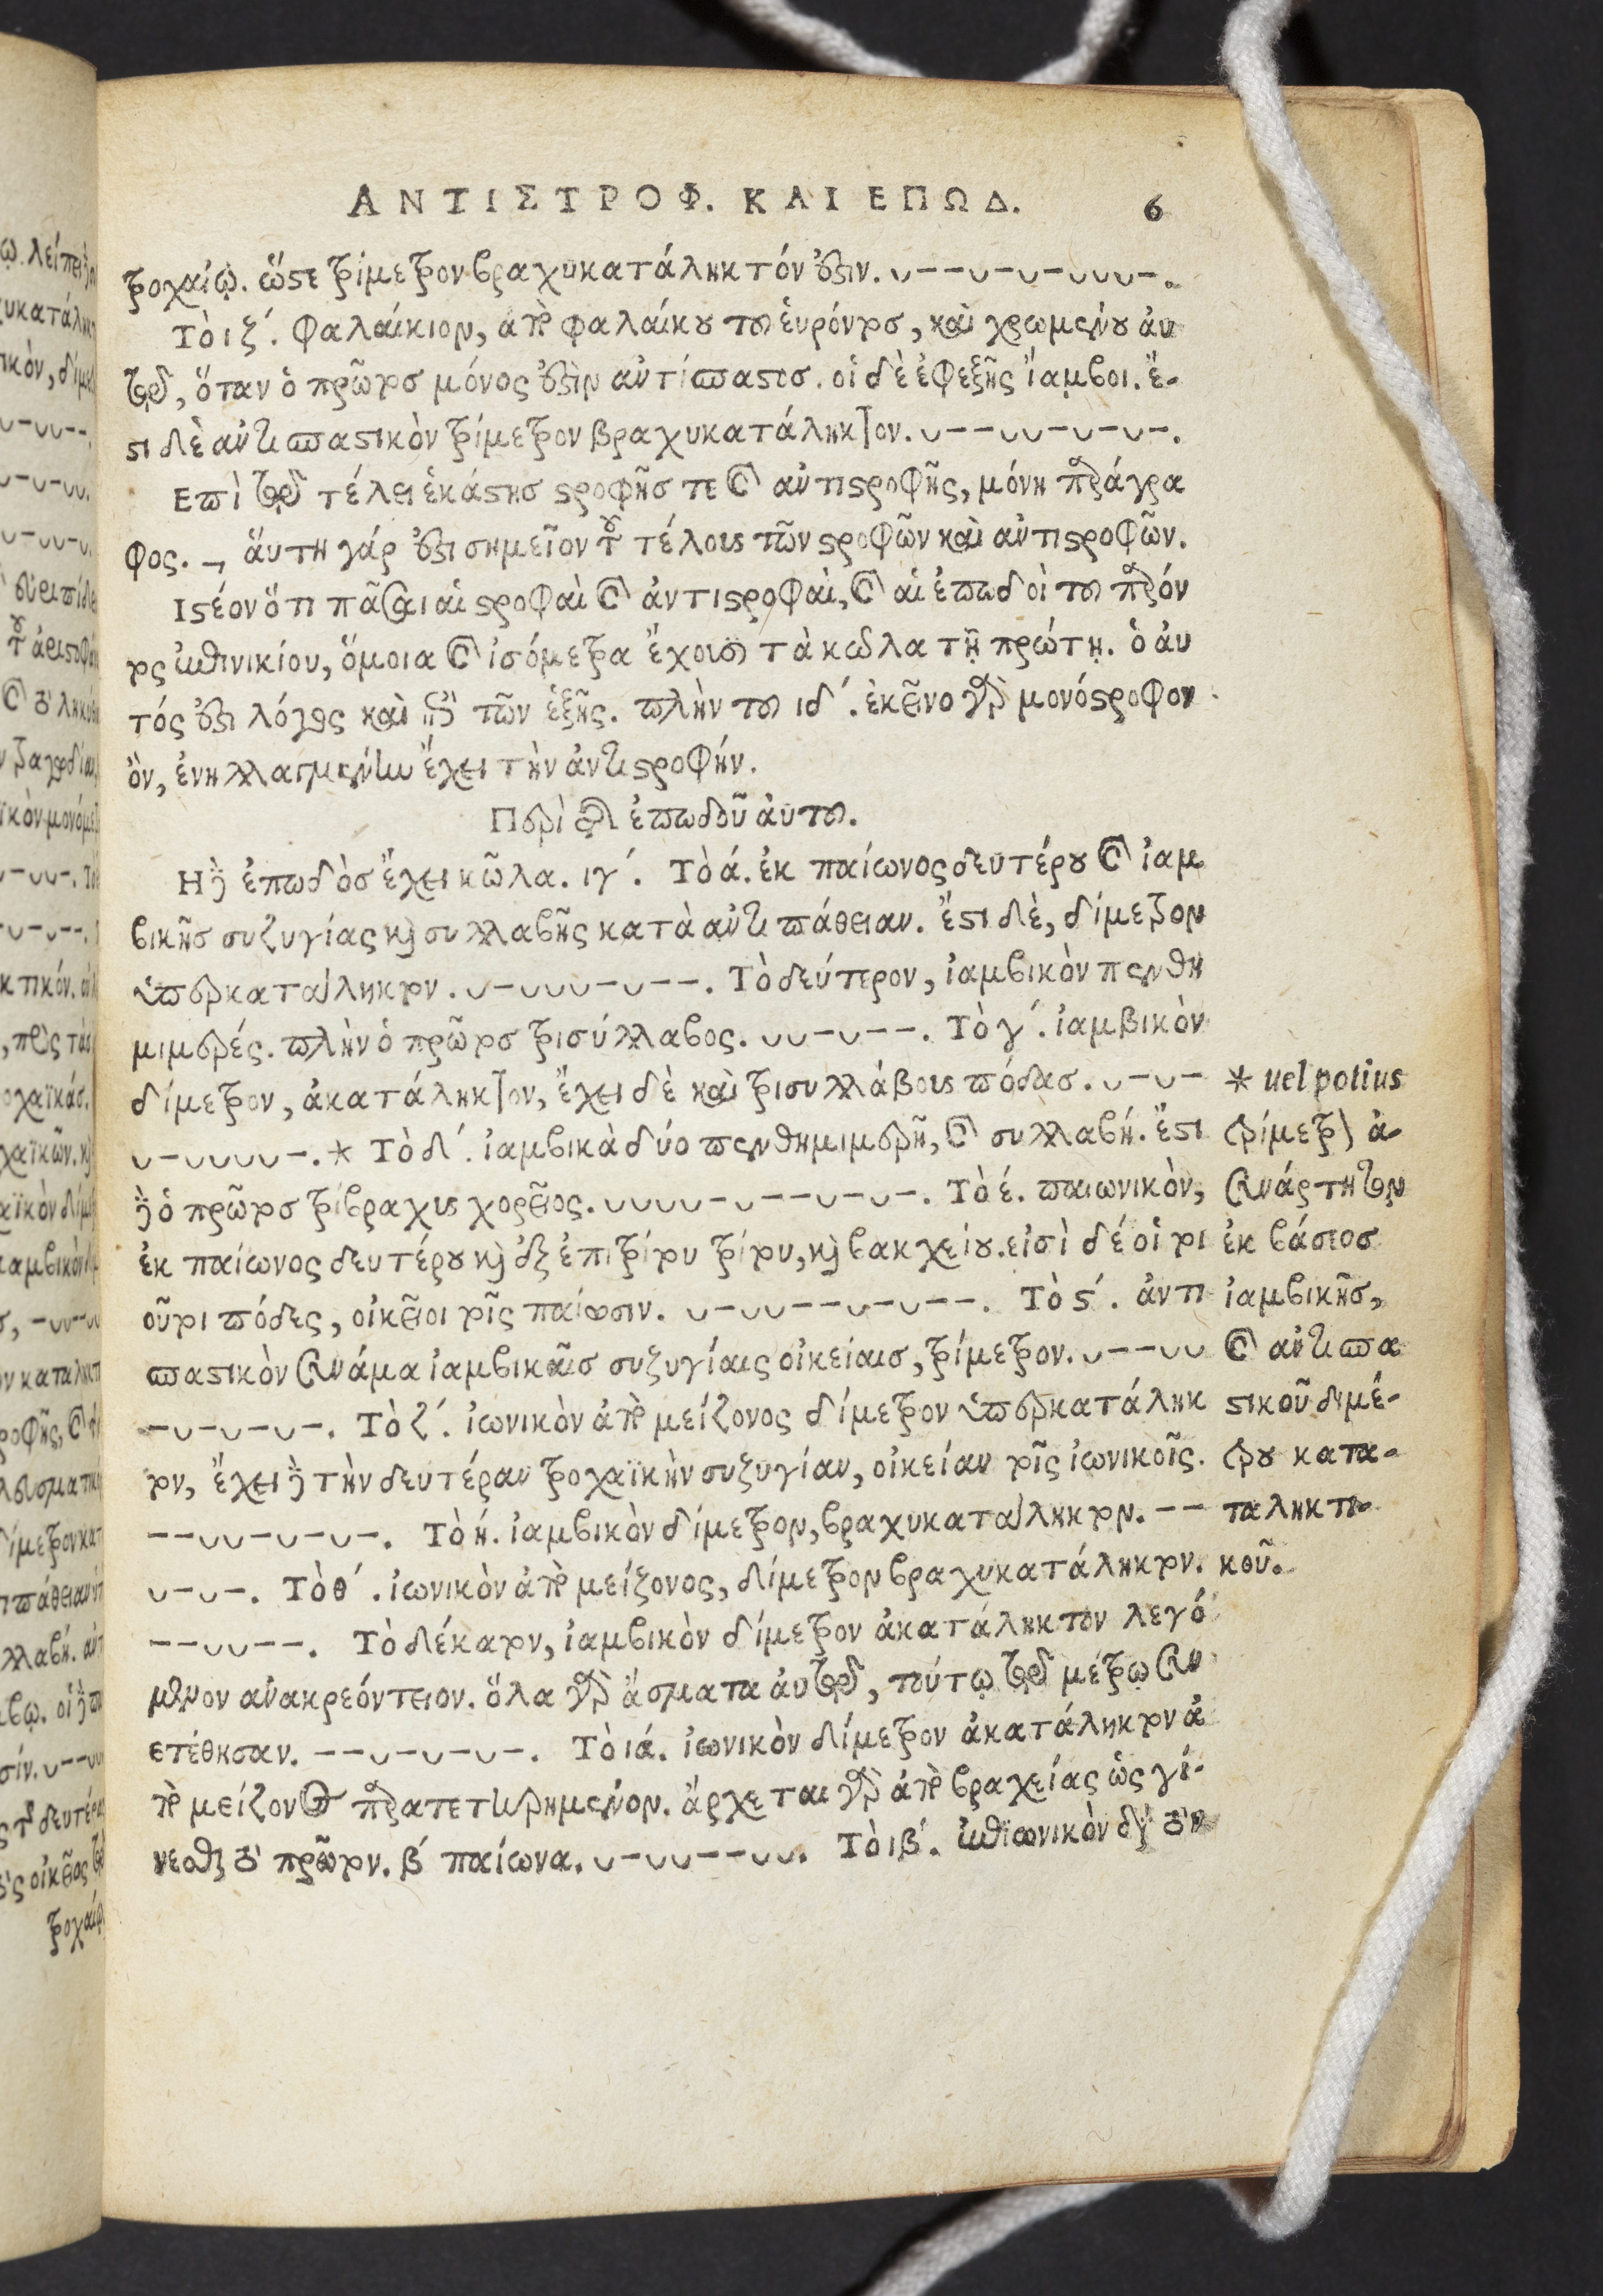 ΑΝΤΙΣΤΡΟΦ. ΚΑΙ ΕΠΩΔ. 6
τροχαίῳ. ὥστε τρίμετρον βραχυκατάληκτόν ἐστιν. ∪––∪–∪–∪∪∪–.
Τὸ ιζ΄. φαλαίκιον, ἀπὸ φαλαίκου τοῦ εὑρόντος, καὶ χρωμένου αὐ
τῷ, ὅταν ὁ πρῶτος μόνος ἐστὶν ἀντίσπαστος. οἱ δὲ ἐφεξῆς ἴαμβοι. ἔ-
στι δὲ ἀντισπαστικὸν τρίμετρον βραχυκατάληκτον. ∪––∪∪–∪–∪–.
Επὶ τῷ τέλει ἑκάστης στροφῆς τε καὶ ἀντιστροφῆς, μόνη παράγρα
φος. –, αὕτη γάρ ἐστι σημεῖον τοῦ τέλους τῶν στροφῶν καὶ ἀντιστροφῶν.
Ιστέον ὅτι πᾶσαι αἱ στροφαὶ καὶ ἀντιστροφαὶ, καὶ αἱ ἐπωδοὶ τοῦ παρόν
τος ἐπινικίου, ὅμοια καὶ ἰσόμετρα ἔχουσι τὰ κῶλα τῇ πρώτῃ. ὁ αὐ
τός ἐστι λόγος καὶ ἐπὶ τῶν ἑξῆς. πλὴν τοῦ ιδ΄. ἐκεῖνο γὰρ μονόστροφον
ὂν, ἐνηλλαγμένην ἔχει τὴν ἀντιστροφήν.
Περὶ τῆς ἐπωδοῦ αὐτοῦ.
Η δὲ ἐπωδὸς ἔχει κῶλα. ιγ΄. Τὸ ά. ἐκ παίωνος δευτέρου καὶ ἰαμ
βικῆς συζυγίας καὶ συλλαβῆς κατὰ ἀντιπάθειαν. ἔστι δὲ, δίμετρον
ὑπερκατάληκτον. ∪–∪∪∪–∪––. Τὸ δεύτερον, ἰαμβικὸν πενθη
μιμερές. πλὴν ὁ πρῶτος τρισύλλαβος. ∪∪–∪––. Τὸ γ΄. ἰαμβικὸν
δίμετρον, ἀκατάληκτον, ἔχει δὲ καὶ τρισυλλάβους πόδας. ∪–∪–
∪–∪∪∪∪–.* Τὸ δ΄. ἰαμβικὰ δύο πενθημιμερῆ, καὶ συλλαβή. ἔστι
δὲ ὁ πρῶτος τρίβραχυς χορεῖος. ∪∪∪∪–∪––∪–∪–. Τὸ έ. παιωνικὸν,
ἐκ παίωνος δευτέρου καὶ ἐξ ἐπιτρίτου τρίτου, καὶ βακχείου. εἰσὶ δέ οἱ τοι
οῦτοι πόδες, οἰκεῖοι τοῖς παίωσιν. ∪–∪∪––∪–∪––. Τὸ ϛ΄. ἀντι
σπαστικὸν συνάμα ἰαμβικαῖς συζυγίαις οἰκείαις, τρίμετρον. ∪––∪∪
–∪–∪–∪–. Τὸ ζ΄. ἰωνικὸν ἀπὸ μείζονος δίμετρον ὑπερκατάληκ
τον, ἔχει δὲ τὴν δευτέραν τροχαϊκὴν συζυγίαν, οἰκείαν τοῖς ἰωνικοῖς.
––∪∪–∪–∪–. Τὸ ή. ἰαμβικὸν δίμετρον, βραχυκατάληκτον. ––
∪–∪–. Τὸ θ΄. ἰωνικὸν ἀπὸ μείζονος, δίμετρον βραχυκατάληκτον.
––∪∪––. Τὸ δέκατον, ἰαμβικὸν δίμετρον ἀκατάληκτον λεγό
μενον ἀνακρεόντειον. ὅλα γὰρ ᾄσματα αὐτῷ, τούτῳ τῷ μέτρῳ συν
ετέθησαν. ––∪–∪–∪–. Τὸ ιά. ἰωνικὸν δίμετρον ἀκατάληκτον ἀ
πὸ μείζονος παρατετηρημένον. ἄρχεται γὰρ ἀπὸ βραχείας ὡς γί-
νεσθαι τὸ πρῶτον. β΄ παίωνα. ∪–∪∪––∪∪. Τὸ ιβ΄. ἐπιωνικὸν
* uel potius
τρίμετρον ἀ-
συνάρτητον
ἐκ βάσεος
ἰαμβικῆς,
καὶ ἀντισπα
στικοῦ διμέ-
τρου κατα-
ταληκτι-
κοῦ.